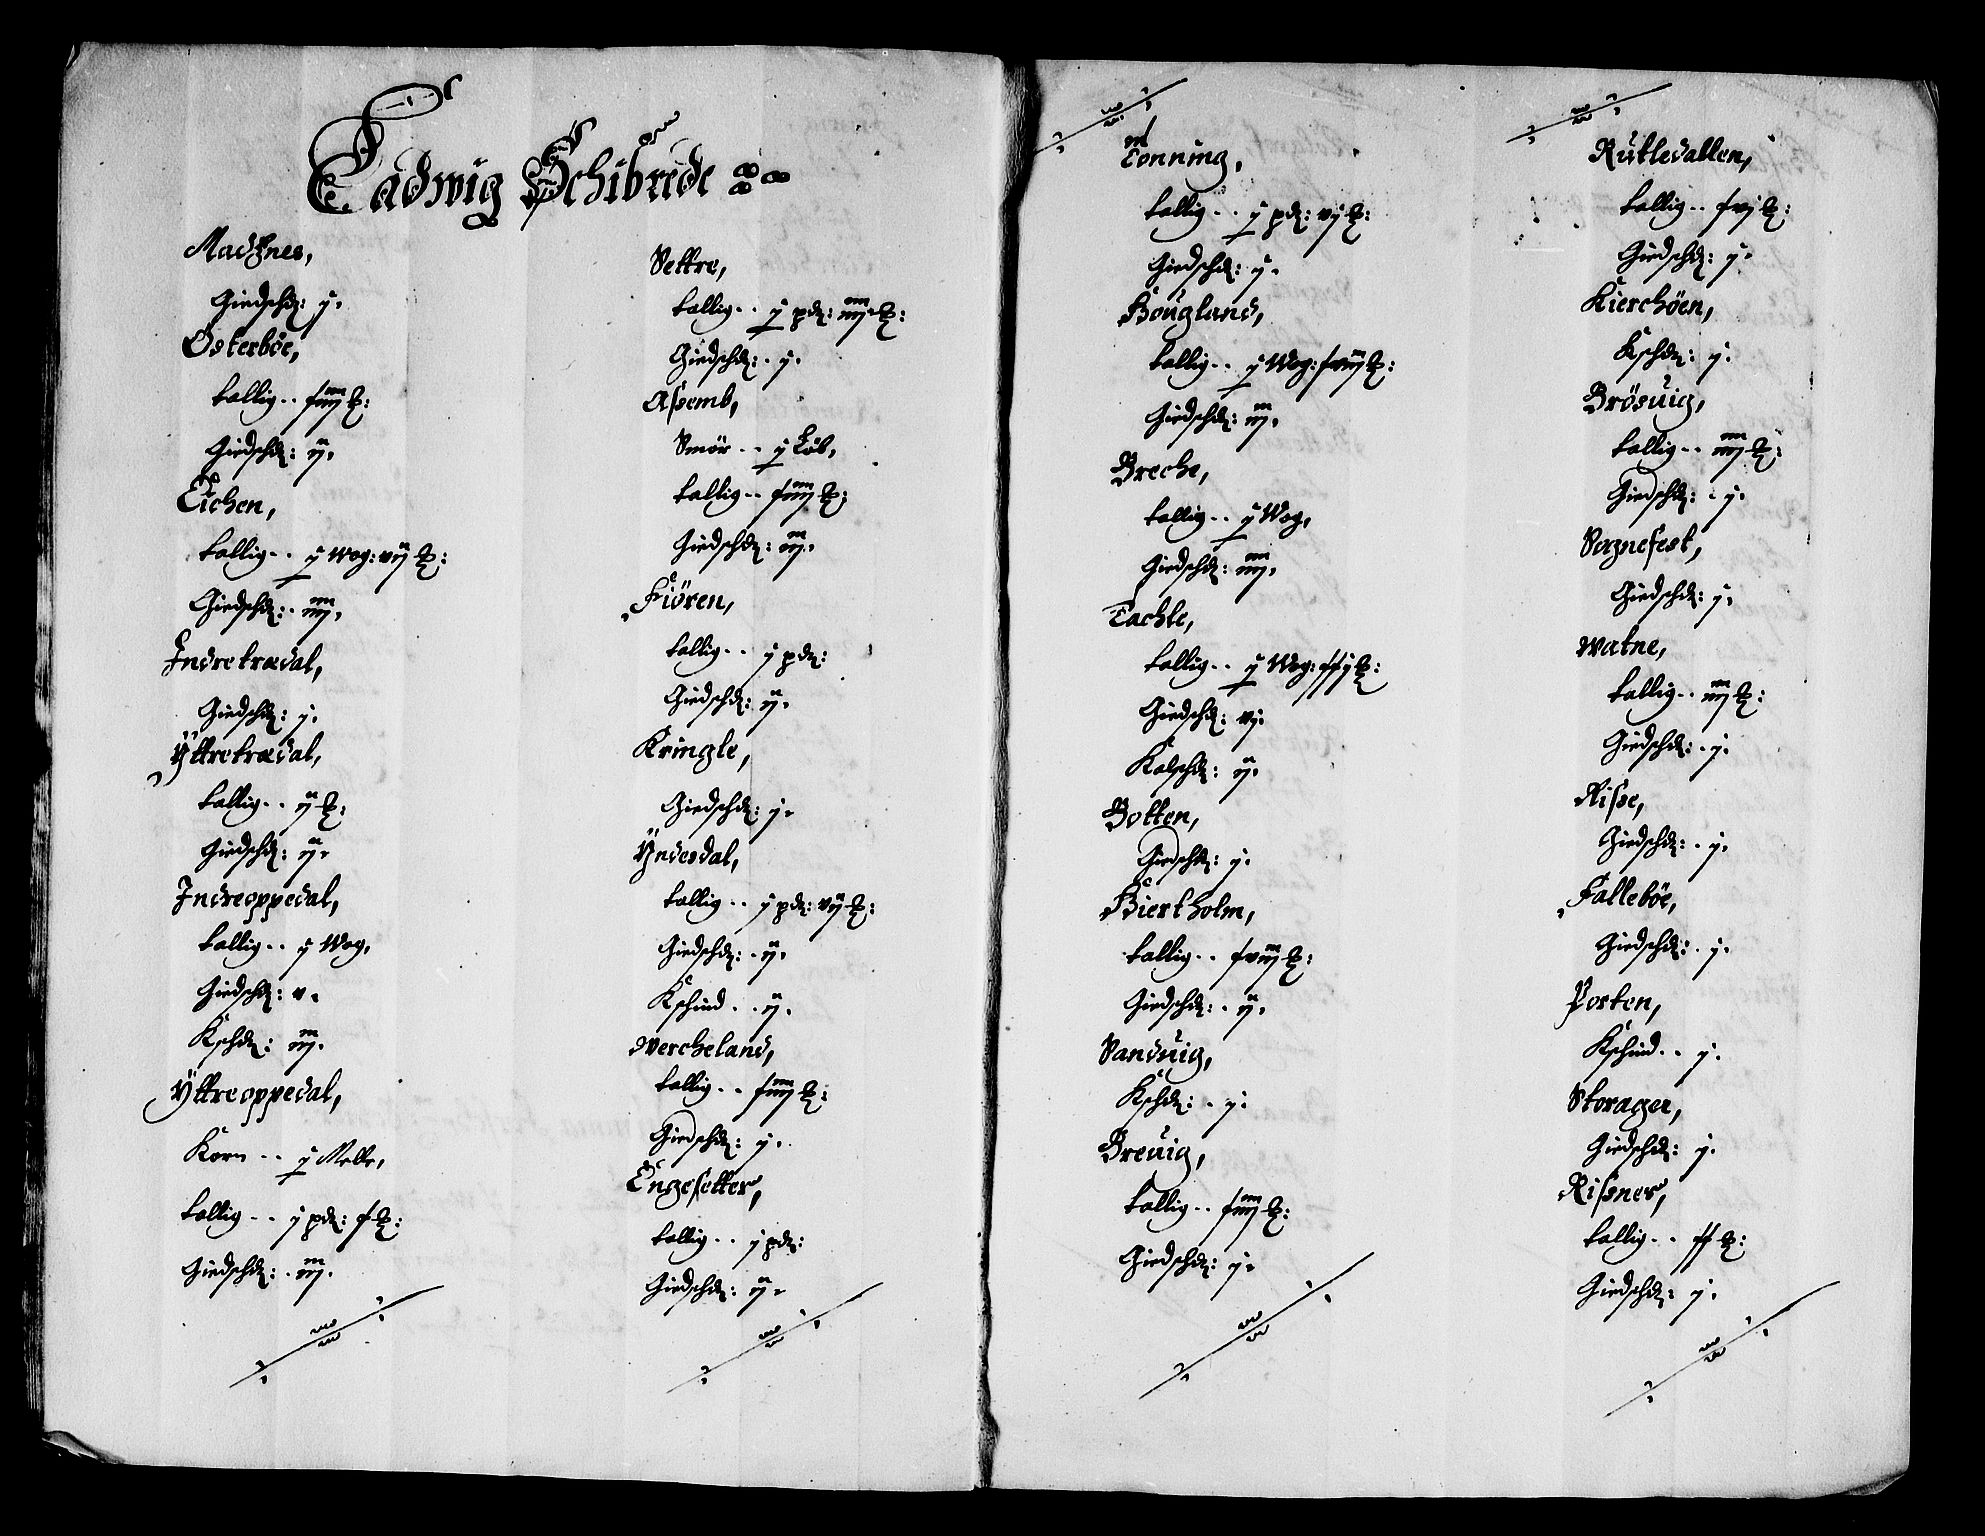 Ladwig Schibrede
Madznes,
Giedschd: j.
Österböe,
Tallig.. fiiij
Giedschd: ij.
Eichen,
Tallig.. j Wog: vij
Giedschd: . iiij.
Indretrædal,
Giedschd: j.
Yttretrædal,
Tallig.. ij
Giedschd: ij.
Indreoppedal,
Tallig.. j Wog,
Giedschd: v.
Kschd: iij.
Yttreoppedal,
Korn .. j Melle,
Tallig .. j pd: f
Giedschd: . iij.
Settre,
Tallig.. j pd: iiij
Giedschd: . j.
Assemb,
Smör .. j Löb,
Tallig.. fiiij
Giedschd: iij.
Fiören,
Tallig.. j pd:
Giedschd: ij.
Kringle,
Giedschd: j.
Yndesdal,
Tallig.. j pd: vij
Giedschd: . ij.
Kschind .. ij.
Vercheland,
Tallig.. fiiij
Giedschd: j.
Engesetter,
Tallig.. j pd:
Giedschd: ij.
Tonning,
Tallig.. j pd: vj
Giedschd: j.
Hougland,
Tallig.. j Wog: fviij
Giedschd: iij.
Breche,
Tallig.. j Wog,
Giedschd: iiij.
Tachle,
Tallig.. j Wog: ffj
Giedschd: vj.
Kalschd: ij.
Botten,
Giedschd: j.
Biertholm,
Tallig.. fviij
Giedschd: . ij.
Sanduig,
Kschd: . j.
Breuig,
Tallig.. fiiij
Giedschd: j.
Rutledallen,
Tallig.. fvj
Giedschd: j.
Kierchöen,
Kschd: j.
Brösuig,
Tallig.. iiij
Giedschd: . j.
Sognefest,
Giedschd: j.
Watne,
Tallig.. iiij
Giedschd: . j.
Risse,
Giedschd: . j.
Falleböe,
Giedschd: . j.
Porten,
Kschind .. j.
Storager,
Giedschd: j.
Rissnes,
Tallig.. ff
Giedschd: j.